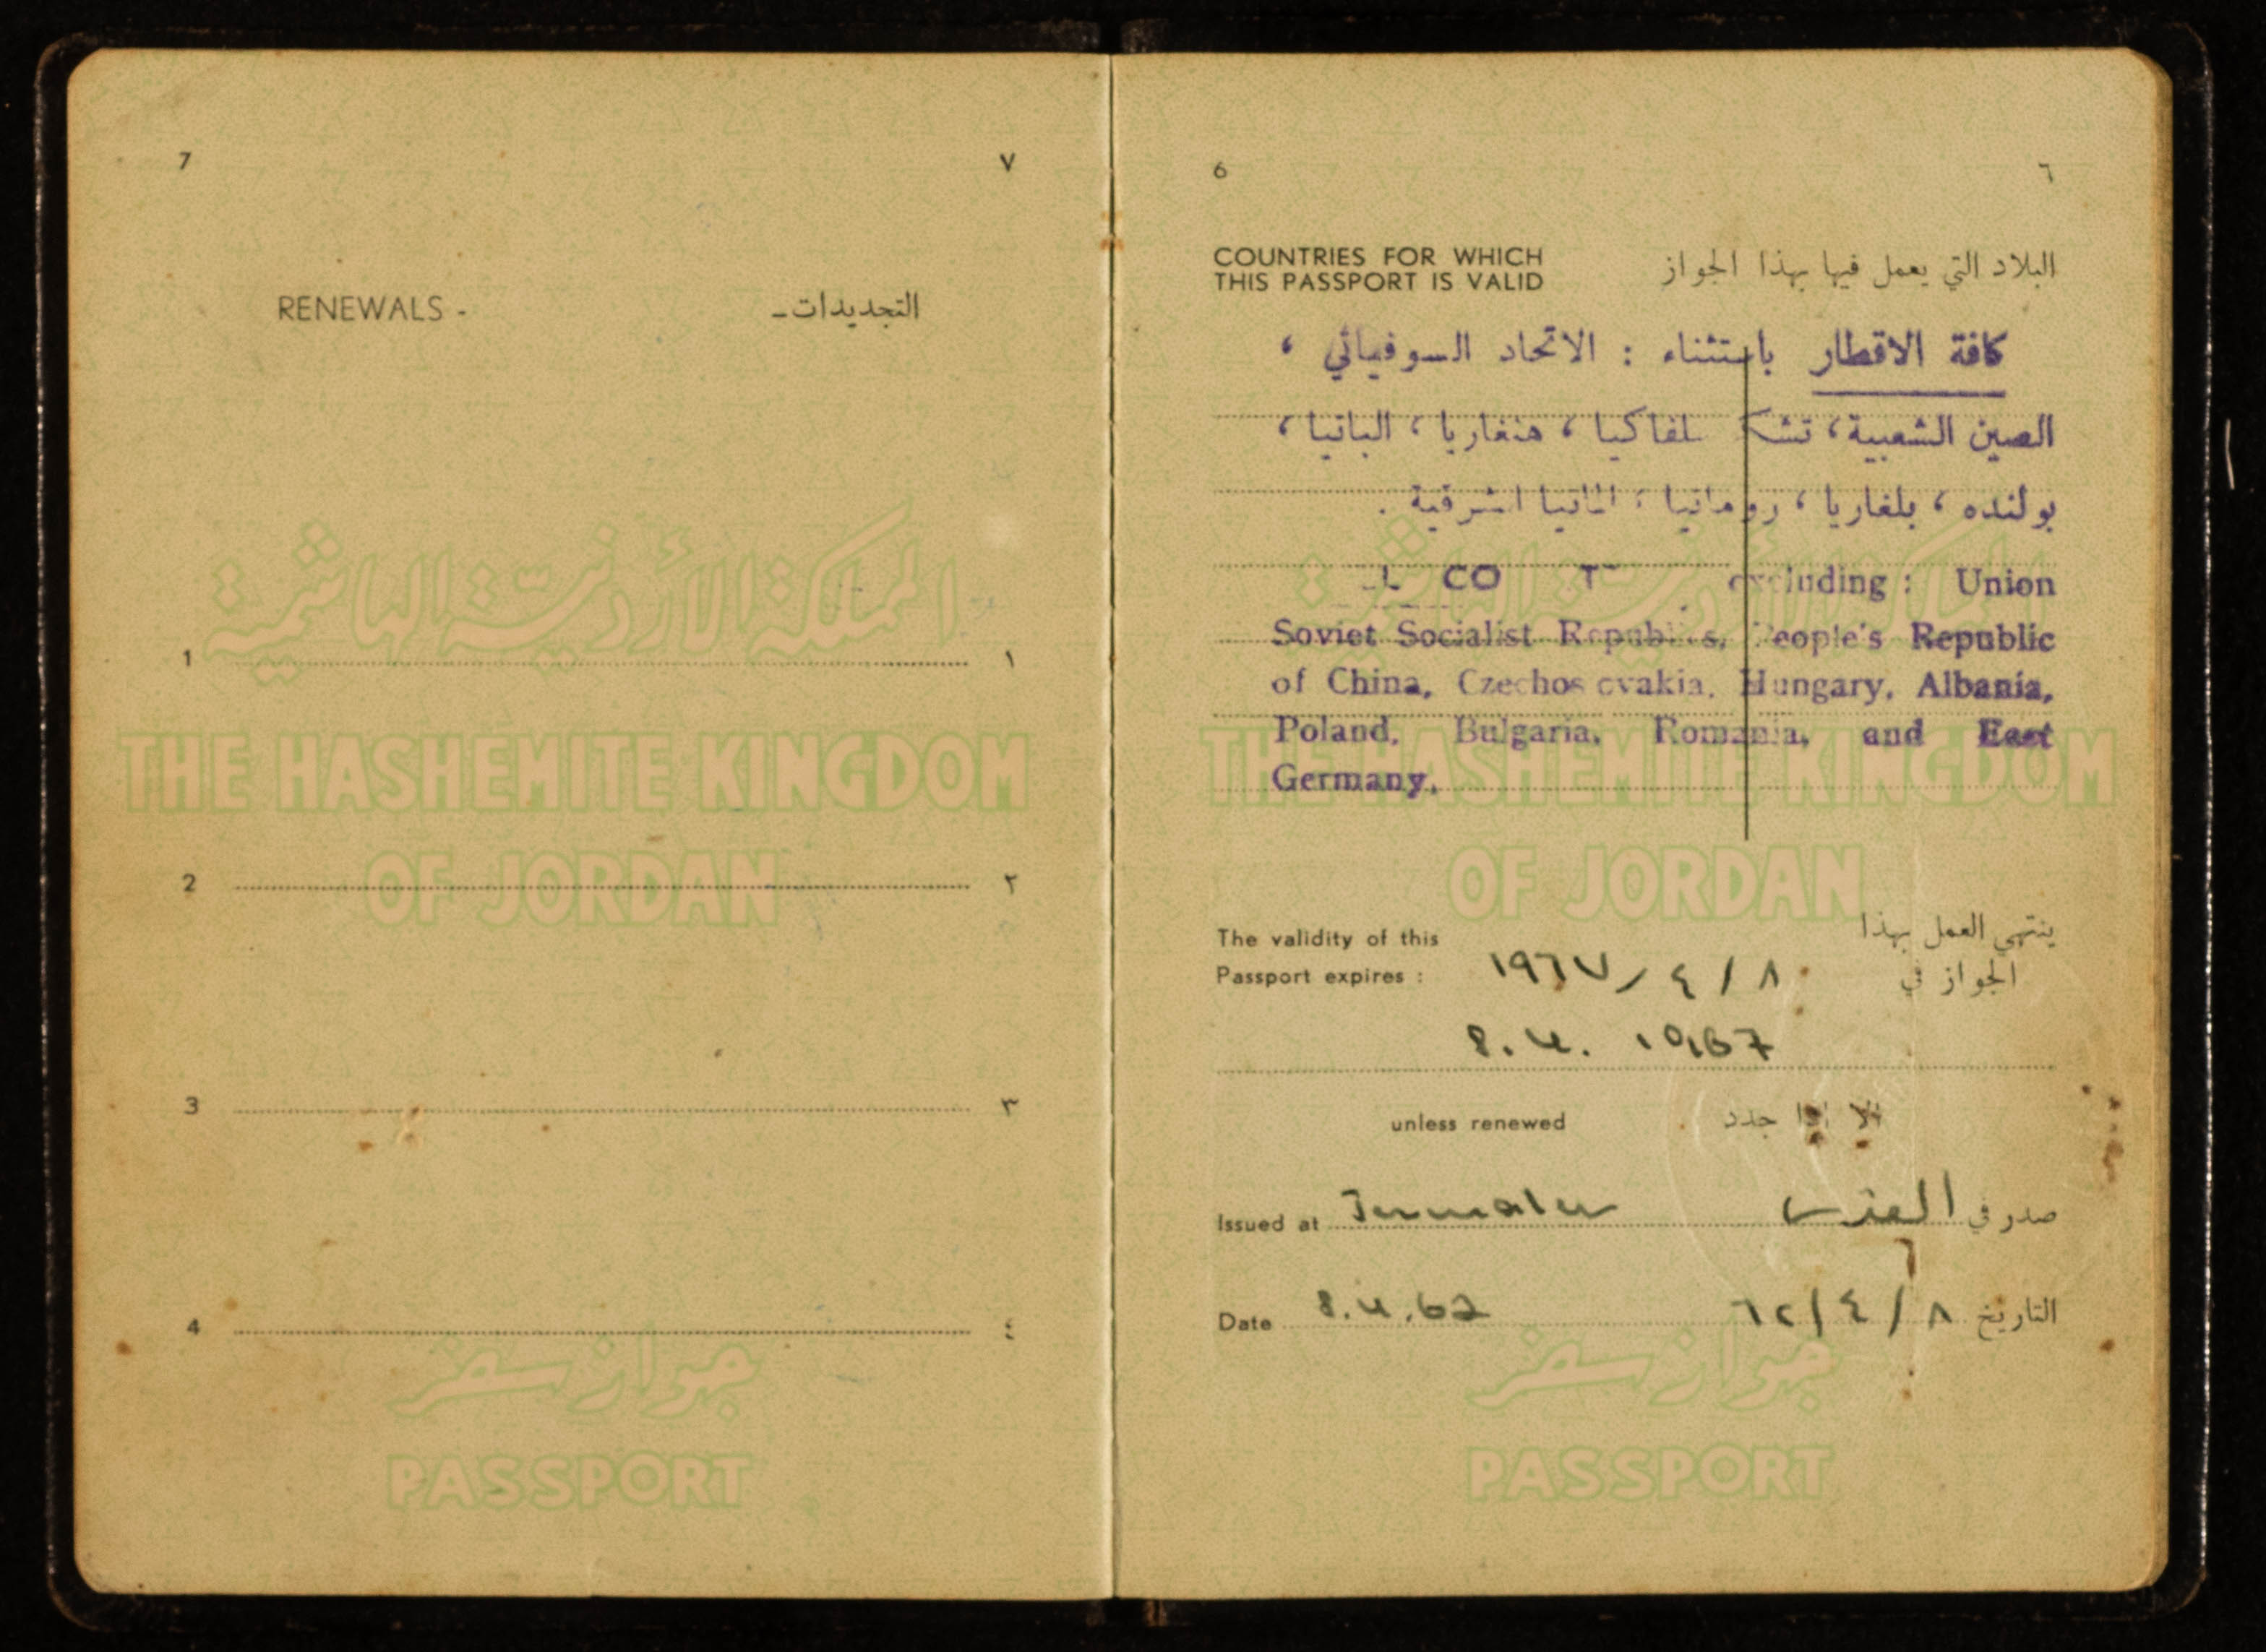 7 ٧
RENEWALS - التجديدات-
المملكة الأردنية الهاشمية
1 ١
THE HASHEMITE KINGDOM
OF JORDAN
2 ٢
3 ٣
4 ٤
جواز سفر
PASSPORT
6 ٦
COUNTRIES FOR WHICH
THIS PASSPORT IS VALID
البلاد التي يعمل فيها بهذا الجواز
كافة الاقطار باستثناء : الاتحاد السوفياتي ،
الصين الشعبية ، تشكسلفاكيا ، هنغاريا ، البانيا ،
بولنده ، بلغاريا ، رومانيا ، المانيا الشرقية .
excluding : Union
Soviet Socialist Republics, People's Republic
of China, Czechoslovakia, Hungary, Albania,
Poland, Bulgaria, Romania, and East
Germany.
المملكة الأردنية الهاشمية
THE HASHEMITE KINGDOM
OF JORDAN
The validity of this ينتهي العمل بهذا
Passport expires : ١٩٦٧/٤/٨ الجواز في
8.4.1967
unless renewed الا اذا جدد
Issued at Jerusalem صدر في القدس
Date 8.4.62 التاريخ ٦٢/٤/٨
جواز سفر
PASSPORT